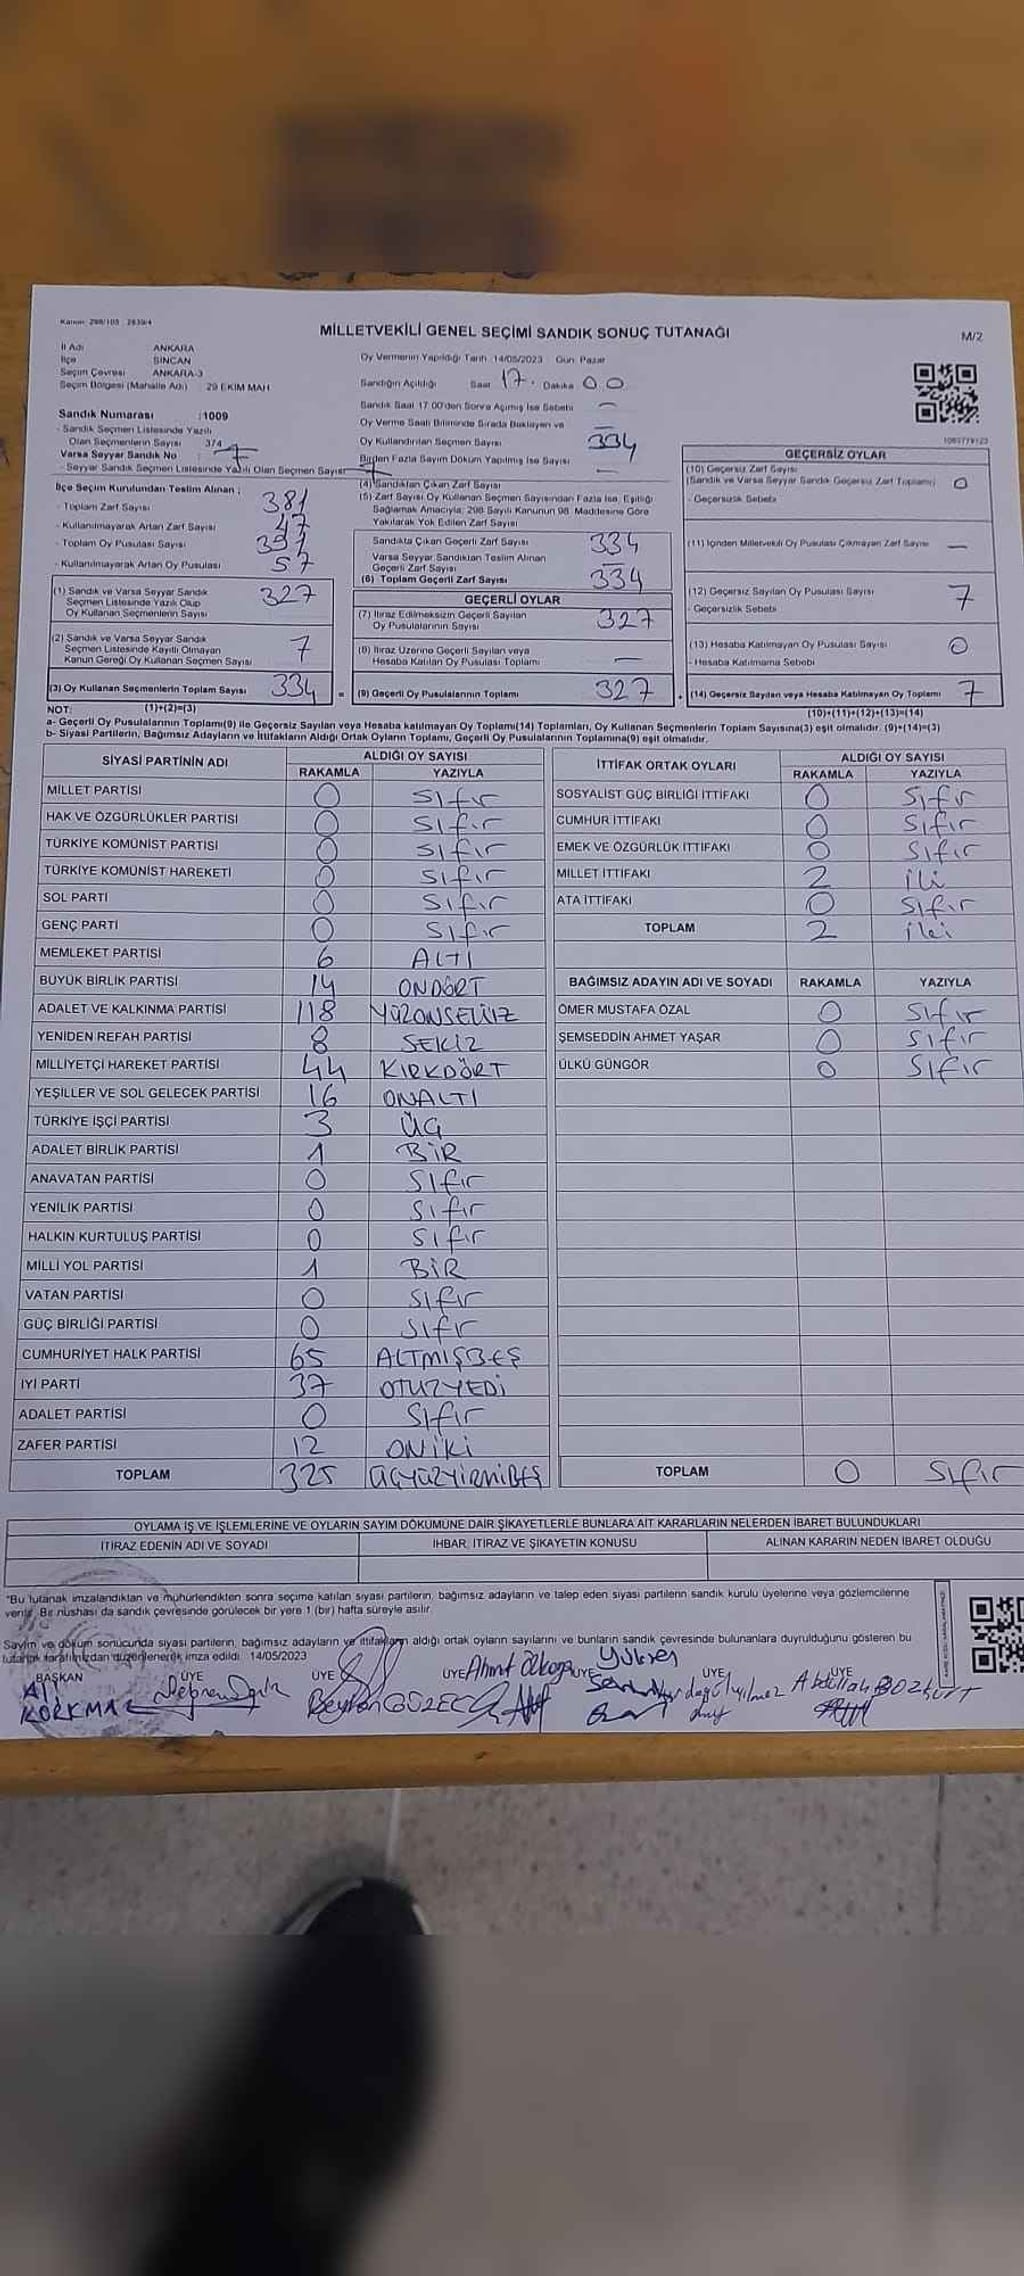 Kanun: 298/105 : 2839/4
MİLLETVEKİLİ GENEL SEÇİMİ SANDIK SONUÇ TUTANAĞI
M/2
İl Adı ANKARA
İlçe SİNCAN
Seçim Çevresi ANKARA-3
Seçim Bölgesi (Mahalle Adı) 29 EKİM MAH
Sandık Numarası :1009
- Sandık Seçmen Listesinde Yazılı
Olan Seçmenlerin Sayısı 374
Varsa Seyyar Sandık No
- Seyyar Sandık Seçmen Listesinde Yazılı Olan Seçmen Sayısı 7
Oy Vermenin Yapıldığı Tarih :14/05/2023 Gün: Pazar
Sandığın Açıldığı Saat 17. Dakika 00
Sandık Saat 17:00'den Sonra Açılmış İse Sebebi —
Oy Verme Saati Bitiminde Sırada Bekleyen ve
Oy Kullandırılan Seçmen Sayısı —
Birden Fazla Sayım Döküm Yapılmış İse Sayısı —
İlçe Seçim Kurulundan Teslim Alınan :
- Toplam Zarf Sayısı 381
- Kullanılmayarak Artan Zarf Sayısı 47
- Toplam Oy Pusulası Sayısı 391
- Kullanılmayarak Artan Oy Pusulası 57
(1) Sandık ve Varsa Seyyar Sandık
Seçmen Listesinde Yazılı Olup
Oy Kullanan Seçmenlerin Sayısı 327
(2) Sandık ve Varsa Seyyar Sandık
Seçmen Listesinde Kayıtlı Olmayan
Kanun Gereği Oy Kullanan Seçmen Sayısı 7
(3) Oy Kullanan Seçmenlerin Toplam Sayısı 334 =
(4) Sandıktan Çıkan Zarf Sayısı 334
(5) Zarf Sayısı Oy Kullanan Seçmen Sayısından Fazla İse, Eşitliği
Sağlamak Amacıyla; 298 Sayılı Kanunun 98. Maddesine Göre
Yakılarak Yok Edilen Zarf Sayısı —
Sandıkta Çıkan Geçerli Zarf Sayısı 334
Varsa Seyyar Sandıktan Teslim Alınan
Geçerli Zarf Sayısı —
(6) Toplam Geçerli Zarf Sayısı 334
GEÇERLİ OYLAR
(7) İtiraz Edilmeksizin Geçerli Sayılan
Oy Pusulalarının Sayısı 327
(8) İtiraz Üzerine Geçerli Sayılan veya
Hesaba Katılan Oy Pusulası Toplamı —
(9) Geçerli Oy Pusulalarının Toplamı 327
GEÇERSİZ OYLAR
(10) Geçersiz Zarf Sayısı
(Sandık ve Varsa Seyyar Sandık Geçersiz Zarf Toplamı) 0
- Geçersizlik Sebebi
(11) İçinden Milletvekili Oy Pusulası Çıkmayan Zarf Sayısı —
(12) Geçersiz Sayılan Oy Pusulası Sayısı 7
- Geçersizlik Sebebi
(13) Hesaba Katılmayan Oy Pusulası Sayısı 0
- Hesaba Katılmama Sebebi
(14) Geçersiz Sayılan veya Hesaba Katılmayan Oy Toplamı 7
NOT: (1)+(2)=(3) (10)+(11)+(12)+(13)=(14)
a- Geçerli Oy Pusulalarının Toplamı(9) ile Geçersiz Sayılan veya Hesaba katılmayan Oy Toplamı(14) Toplamları, Oy Kullanan Seçmenlerin Toplam Sayısına(3) eşit olmalıdır. (9)+(14)=(3)
b- Siyasi Partilerin, Bağımsız Adayların ve İttifakların Aldığı Ortak Oyların Toplamı, Geçerli Oy Pusulalarının Toplamına(9) eşit olmalıdır.
SİYASİ PARTİNİN ADI ALDIĞI OY SAYISI
RAKAMLA YAZIYLA
MİLLET PARTİSİ 0 Sıfır
HAK VE ÖZGÜRLÜKLER PARTİSİ 0 Sıfır
TÜRKİYE KOMÜNİST PARTİSİ 0 Sıfır
TÜRKİYE KOMÜNİST HAREKETİ 0 Sıfır
SOL PARTİ 0 Sıfır
GENÇ PARTİ 0 Sıfır
MEMLEKET PARTİSİ 6 ALTI
BÜYÜK BİRLİK PARTİSİ 14 ONDÖRT
ADALET VE KALKINMA PARTİSİ 118 YÜZONSEKİZ
YENİDEN REFAH PARTİSİ 8 SEKİZ
MİLLİYETÇİ HAREKET PARTİSİ 44 KIRKDÖRT
YEŞİLLER VE SOL GELECEK PARTİSİ 16 ONALTI
TÜRKİYE İŞÇİ PARTİSİ 3 ÜÇ
ADALET BİRLİK PARTİSİ 1 BİR
ANAVATAN PARTİSİ 0 Sıfır
YENİLİK PARTİSİ 0 Sıfır
HALKIN KURTULUŞ PARTİSİ 0 Sıfır
MİLLİ YOL PARTİSİ 1 BİR
VATAN PARTİSİ 0 Sıfır
GÜÇ BİRLİĞİ PARTİSİ 0 Sıfır
CUMHURİYET HALK PARTİSİ 65 ALTMIŞBEŞ
İYİ PARTİ 37 OTUZYEDİ
ADALET PARTİSİ 0 Sıfır
ZAFER PARTİSİ 12 ONİKİ
TOPLAM 325 ÜÇYÜZYİRMİBEŞ
İTTİFAK ORTAK OYLARI ALDIĞI OY SAYISI
RAKAMLA YAZIYLA
SOSYALİST GÜÇ BİRLİĞİ İTTİFAKI 0 Sıfır
CUMHUR İTTİFAKI 0 Sıfır
EMEK VE ÖZGÜRLÜK İTTİFAKI 0 Sıfır
MİLLET İTTİFAKI 2 iki
ATA İTTİFAKI 0 Sıfır
TOPLAM 2 iki
BAĞIMSIZ ADAYIN ADI VE SOYADI RAKAMLA YAZIYLA
ÖMER MUSTAFA ÖZAL 0 Sıfır
ŞEMSEDDİN AHMET YAŞAR 0 Sıfır
ÜLKÜ GÜNGÖR 0 Sıfır
TOPLAM 0 Sıfır
OYLAMA İŞ VE İŞLEMLERİNE VE OYLARIN SAYIM DÖKÜMÜNE DAİR ŞİKAYETLERLE BUNLARA AİT KARARLARIN NELERDEN İBARET BULUNDUKLARI
İTİRAZ EDENİN ADI VE SOYADI İHBAR, İTİRAZ VE ŞİKAYETİN KONUSU ALINAN KARARIN NEDEN İBARET OLDUĞU
"Bu tutanak imzalandıktan ve mühürlendikten sonra seçime katılan siyasi partilerin, bağımsız adayların ve talep eden siyasi partilerin sandık kurulu üyelerine veya gözlemcilerine
verilir. Bir nüshası da sandık çevresinde görülecek bir yere 1 (bir) hafta süreyle asılır.
Sayım ve döküm sonucunda siyasi partilerin, bağımsız adayların ve ittifakların aldığı ortak oyların sayılarını ve bunların sandık çevresinde bulunanlara duyrulduğunu gösteren bu
tutanak tarafımızdan düzenlenerek imza edildi. 14/05/2023
BAŞKAN ÜYE ÜYE ÜYE ÜYE ÜYE ÜYE
KORKMAZ Beyhan GÜZEL Ahmet Yüksel Abdullah BOZKURT